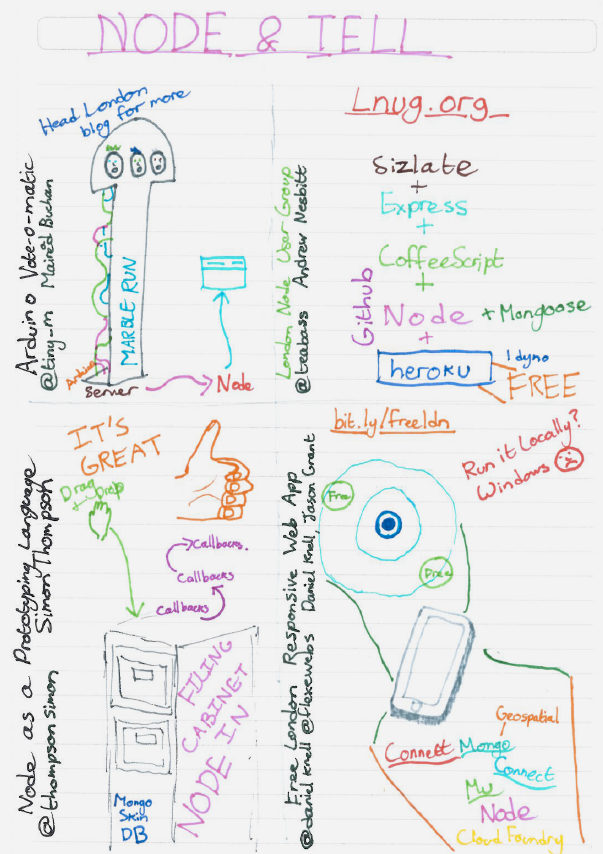 NODE & TELL
Arduino Vote-o-matic
@tiny_m Mairead Buchan
Head London
blog for more
MARBLE RUN
Arduino
Server
Node
London Node User Group
@teabass Andrew Nesbitt
Lnug.org
Sizlate
+
Express
+
CoffeeScript
+
Github
Node + Mongoose
+
heroku
1 dyno
FREE
Node as a Prototyping Language
Simon Thompson
@thompson simon
IT'S
GREAT
Drag
Drop
Callbacks.
Callbacks
Callbacks
FILING
CABINET
IN
NODE
Mongo
Skin
DB
Free London Responsive Web App
@daniel knell @flexewebs Daniel Knell, Jason Grant
bit.ly/freeldn
Run it Locally?
Windows
Free
Geospatial
Connect Mongo
Connect
MW
Node
Cloud Foundry